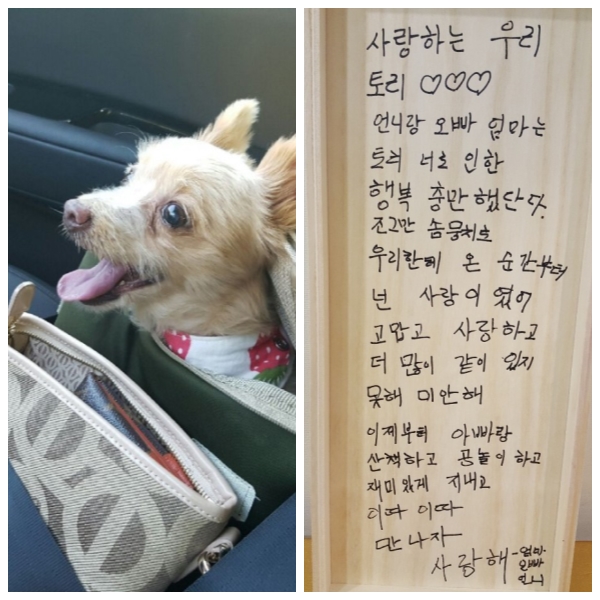 사랑하는 우리
토리 ♡♡♡
언니랑 오빠 엄마는
토리 너로 인한
행복 충만했단다.
조그만 솜뭉치로
우리한테 온 순간부터
넌 사랑이었어
고맙고 사랑하고
더 많이 같이 있지
못해 미안해
이제부터 아빠랑
산책하고 공놀이하고
재미있게 지내고
이따 이따
만나자
사랑해 -엄마.
오빠
언니